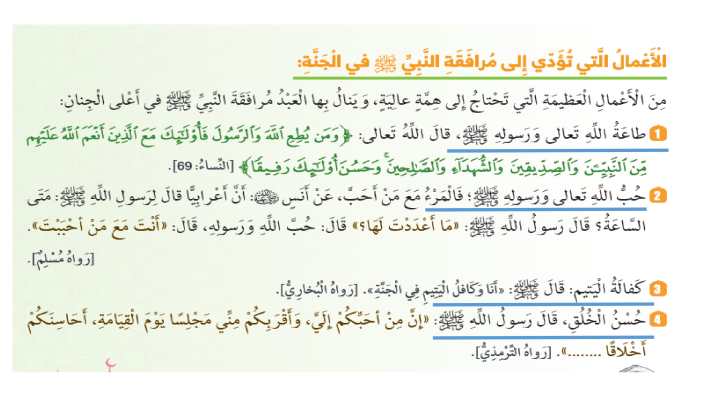 الْأَعْمالُ الَّتي تُؤَدّي إِلى مُرافَقَةِ النَّبِيِّ ﷺ في الْجَنَّةِ:
مِنَ الْأَعْمالِ الْعَظيمَةِ الَّتي تَحْتاجُ إِلى هِمَّةٍ عالِيَةٍ، وَيَنالُ بِها الْعَبْدُ مُرافَقَةَ النَّبِيِّ ﷺ في أَعْلى الْجِنانِ:
1 طاعَةُ اللَّهِ تَعالى وَرَسولِهِ ﷺ، قالَ اللَّهُ تَعالى: ﴿وَمَن يُطِعِ ٱللَّهَ وَٱلرَّسُولَ فَأُوْلَٰٓئِكَ مَعَ ٱلَّذِينَ أَنْعَمَ ٱللَّهُ عَلَيْهِم
مِّنَ ٱلنَّبِيِّـۧنَ وَٱلصِّدِّيقِينَ وَٱلشُّهَدَآءِ وَٱلصَّٰلِحِينَۚ وَحَسُنَ أُوْلَٰٓئِكَ رَفِيقًا﴾ [النِّساءُ: 69].
2 حُبُّ اللَّهِ تَعالى وَرَسولِهِ ﷺ؛ فَالْمَرْءُ مَعَ مَنْ أَحَبَّ، عَنْ أَنَسٍ رضي الله عنه: أَنَّ أَعْرابِيًّا قالَ لِرَسولِ اللَّهِ ﷺ: مَتَى
السَّاعَةُ؟ قالَ رَسولُ اللَّهِ ﷺ: «مَا أَعْدَدْتَ لَهَا؟» قَالَ: حُبَّ اللَّهِ وَرَسولِهِ، قَالَ: «أَنْتَ مَعَ مَنْ أَحْبَبْتَ».
[رَواهُ مُسْلِمٌ].
3 كَفالَةُ الْيَتيمِ: قَالَ ﷺ: «أَنَا وَكَافِلُ الْيَتِيمِ فِي الْجَنَّةِ». [رَواهُ الْبُخارِيُّ].
4 حُسْنُ الْخُلُقِ، قَالَ رَسولُ اللَّهِ ﷺ: «إِنَّ مِنْ أَحَبِّكُمْ إِلَيَّ، وَأَقْرَبِكُمْ مِنِّي مَجْلِسًا يَوْمَ الْقِيَامَةِ، أَحَاسِنَكُمْ
أَخْلَاقًا ........». [رَواهُ التِّرْمِذِيُّ].